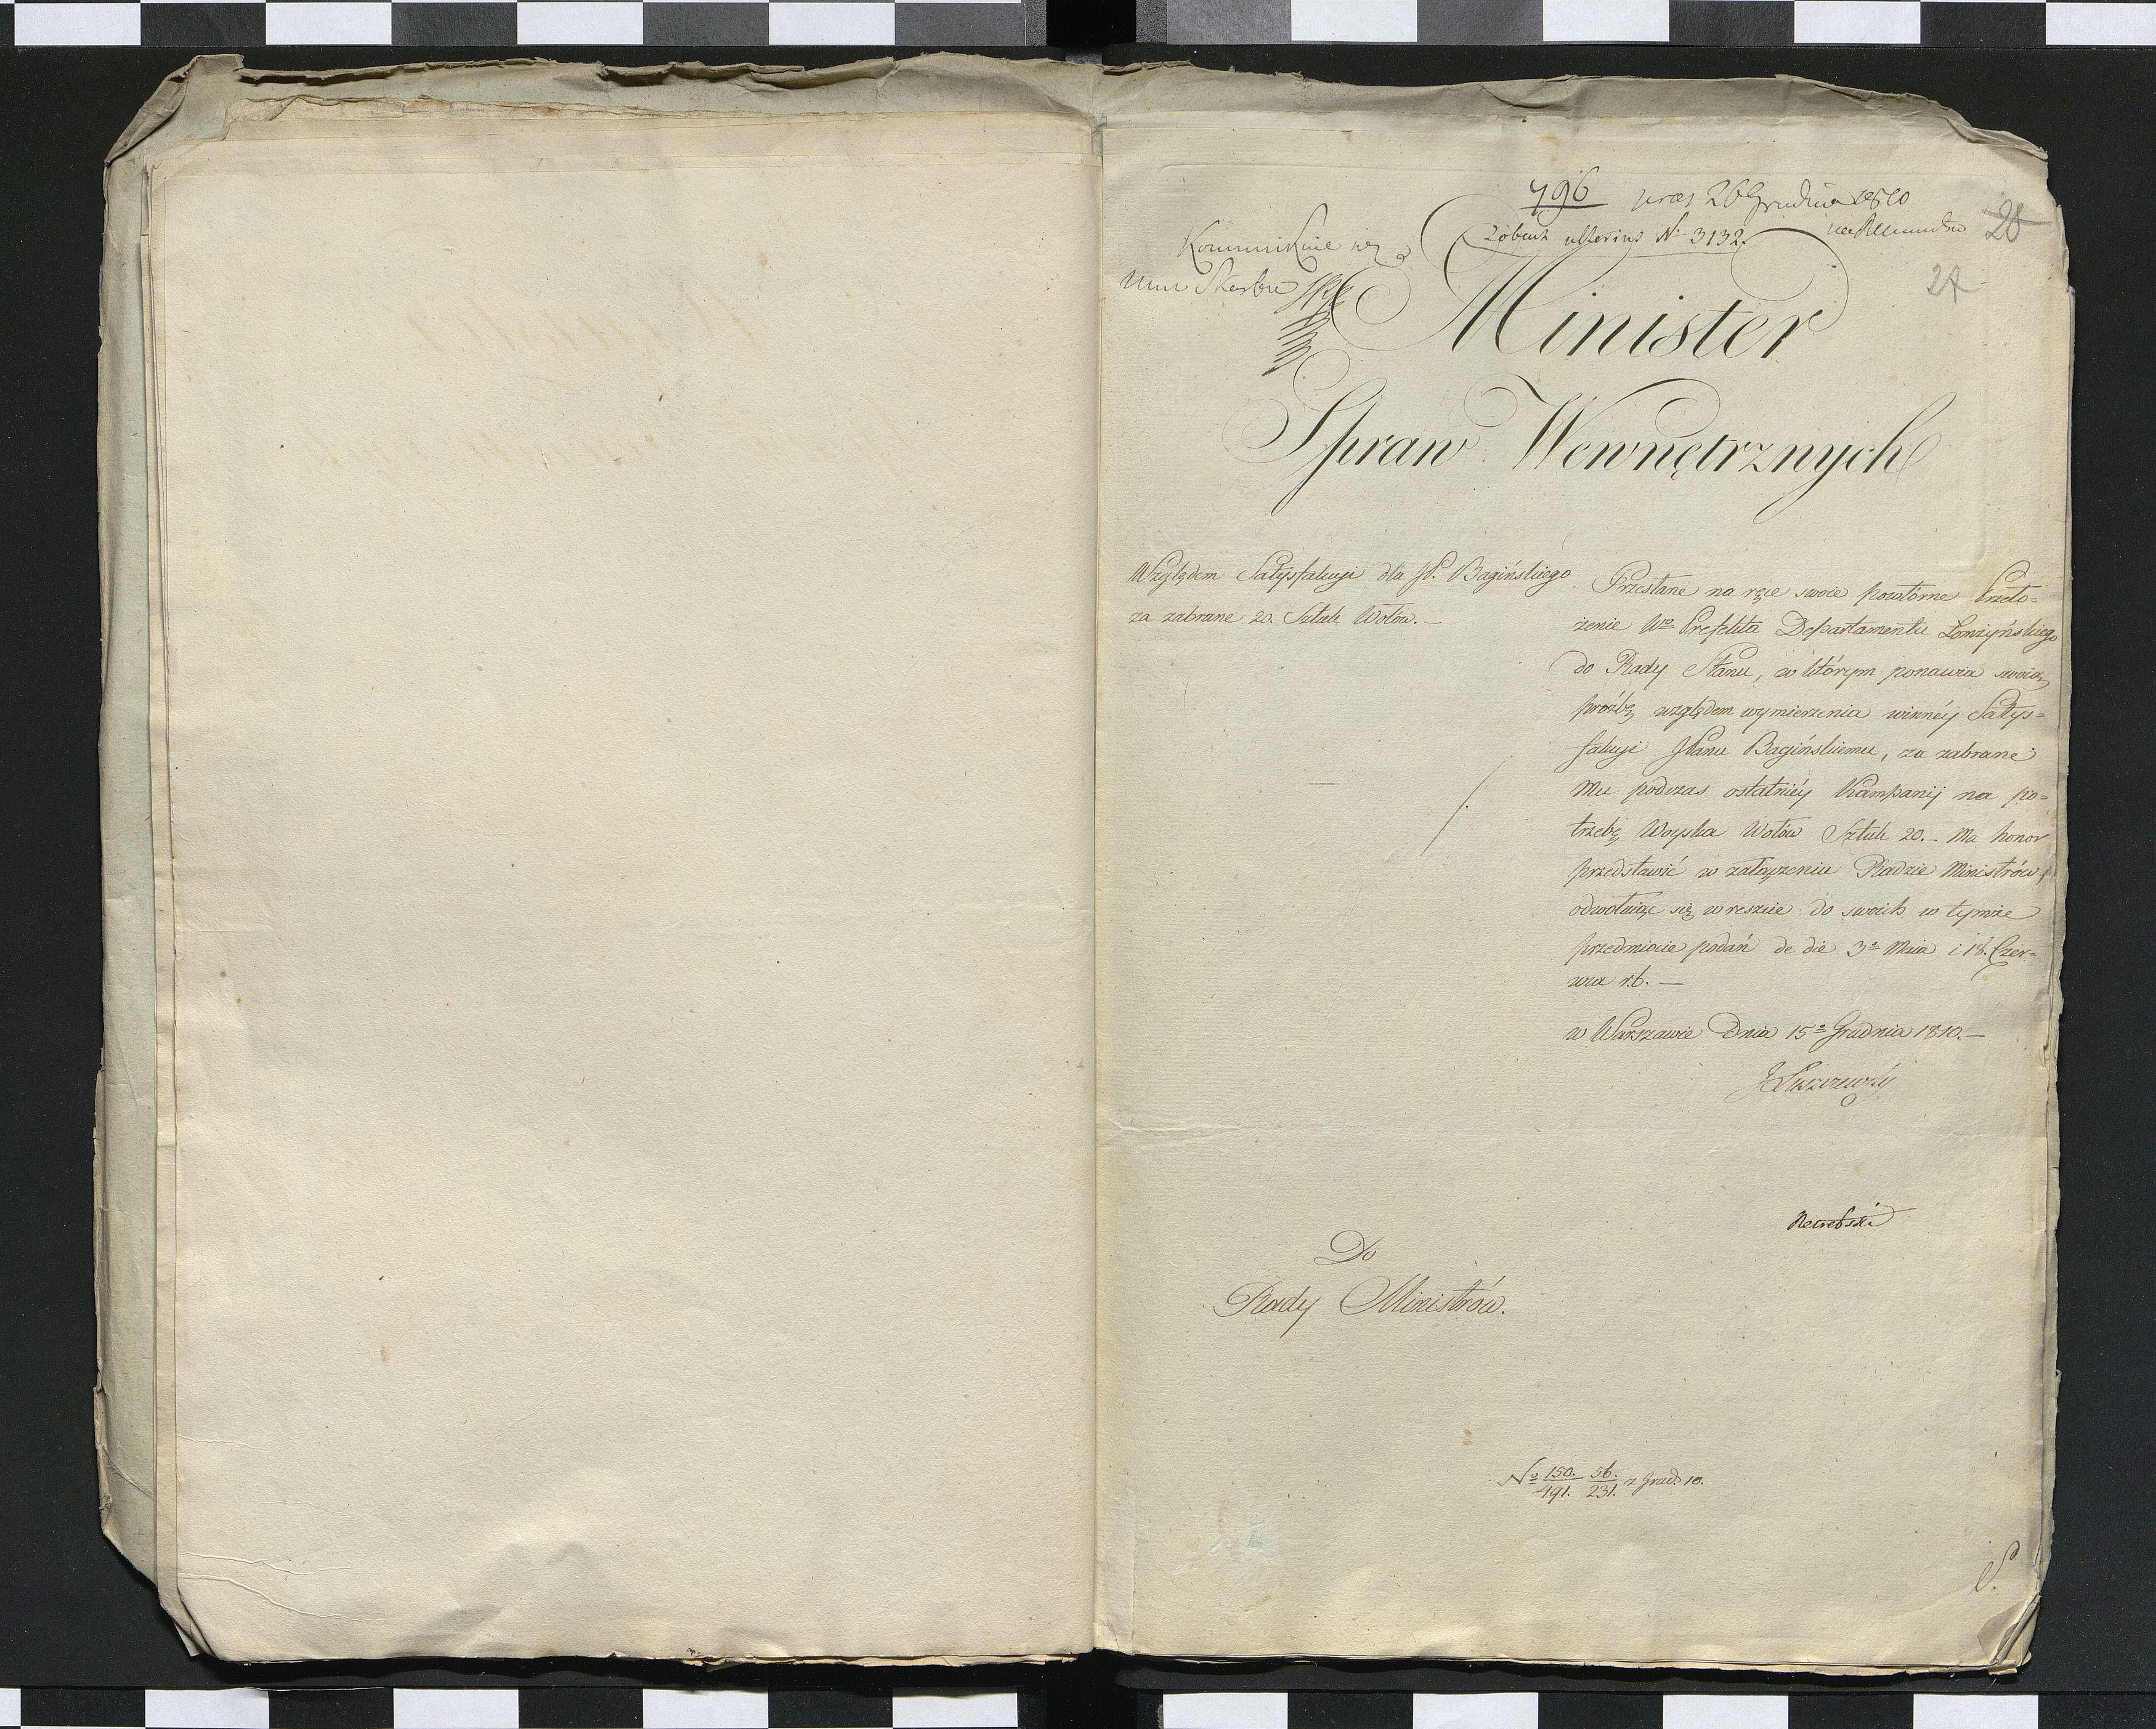 796 praes 26 Grudnia 1810
Zobacz ulterius N. 3132.
28
27
Kommunikuie się
Minr Skarbu
Minister
Spraw Wewnętrznych
Względem Satysfakcyi dla JP. Bagińskiego
za zabrane 20. Sztuk Wołów. —
Przesłane na ręce swoie powtórne Przeło=
żenie Wo Prefekta Departamentu Łomżyńskiego
do Rady Stanu, w którym ponawia swoią
prożbę względem wymierzenia winnéy Satys=
fakcyi JPanu Bagińskiemu, za zabrane
mu podczas ostatniéy Kampanij na po=
trzebę Woyska Wołów Sztuk 20. – Ma honor
przedstawić w załączeniu Radzie Ministrów,
odwołuiąc się w reszcie do swoich w tymże
przedmiocie podań de die 3o Maia i 18. Czer=
wca r.b. —
w Warszawie Dnia 15o Grudnia 1810. —
JŁuszczewski
Do
Rady Ministrów.
No 150./491. 56./231. z Grud. 10.